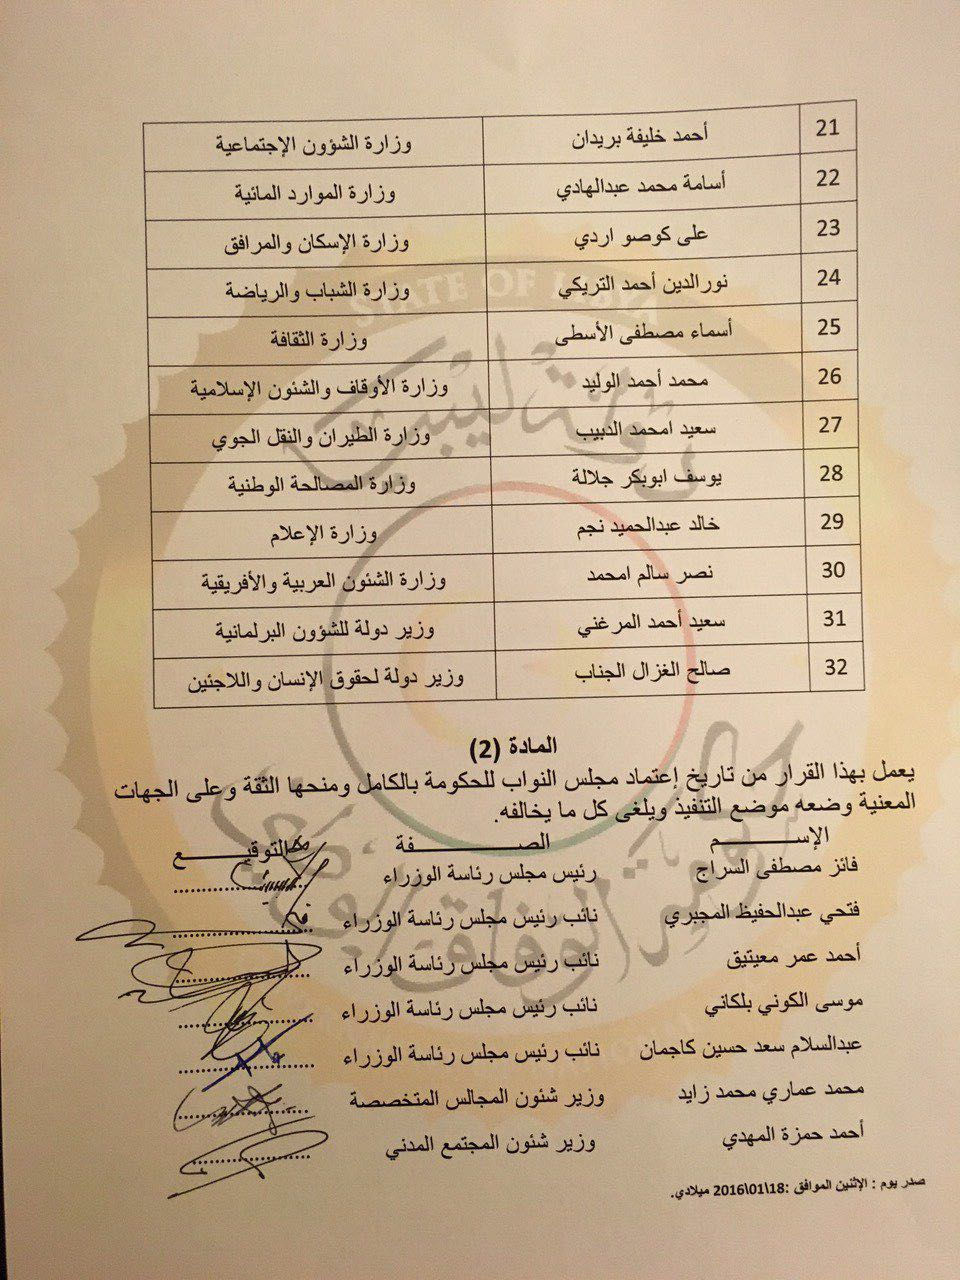 21 أحمد خليفة بريدان وزارة الشؤون الإجتماعية
22 أسامة محمد عبدالهادي وزارة الموارد المائية
23 على كوصو اردي وزارة الإسكان والمرافق
24 نورالدين أحمد التريكي وزارة الشباب والرياضة
25 أسماء مصطفى الأسطى وزارة الثقافة
26 محمد أحمد الوليد وزارة الأوقاف والشئون الإسلامية
27 سعيد امحمد الدبيب وزارة الطيران والنقل الجوي
28 يوسف ابوبكر جلالة وزارة المصالحة الوطنية
29 خالد عبدالحميد نجم وزارة الإعلام
30 نصر سالم امحمد وزارة الشئون العربية والأفريقية
31 سعيد أحمد المرغني وزير دولة للشؤون البرلمانية
32 صالح الغزال الجناب وزير دولة لحقوق الإنسان واللاجئين
STATE OF
دولة ليبيا
المادة (2)
يعمل بهذا القرار من تاريخ إعتماد مجلس النواب للحكومة بالكامل ومنحها الثقة وعلى الجهات
المعنية وضعه موضع التنفيذ ويلغى كل ما يخالفه.
الإســـــم الصـــــفة التوقيـــــع
فائز مصطفى السراج رئيس مجلس رئاسة الوزراء
فتحي عبدالحفيظ المجبري نائب رئيس مجلس رئاسة الوزراء
أحمد عمر معيتيق نائب رئيس مجلس رئاسة الوزراء
موسى الكوني بلكاني نائب رئيس مجلس رئاسة الوزراء
عبدالسلام سعد حسين كاجمان نائب رئيس مجلس رئاسة الوزراء
محمد عماري محمد زايد وزير شئون المجالس المتخصصة
أحمد حمزة المهدي وزير شئون المجتمع المدني
صدر يوم : الإثنين الموافق :18\01\2016 ميلادي.